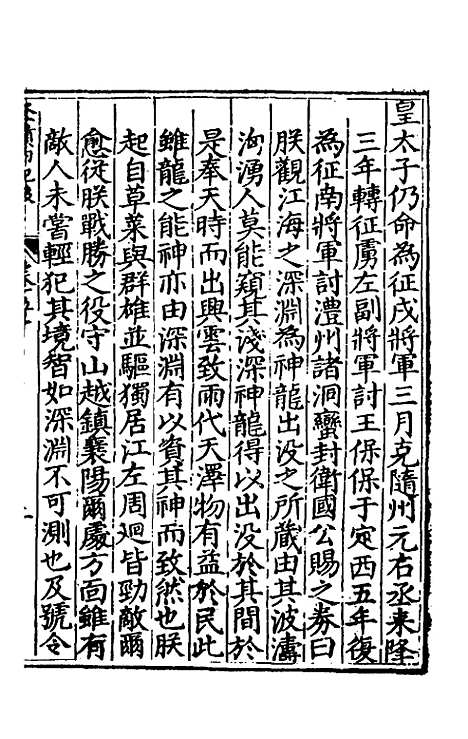 皇太子仍命為征戍將軍三月克隨州元右丞來降
三年轉征虜左副將軍討王保保于定西五年復
為征南將軍討澧州諸洞蠻封衛國公賜之券曰
朕觀江海之深淵為神龍出没之所蔵由其波濤
洶湧人莫能窺其淺深神龍得以出没於其間於
是奉天時而出興雲致雨代天澤物有益於民此
雖龍之能神亦由深淵有以資其神而致然也朕
起自草萊與群雄並驅獨居江左周廻皆勁敵爾
愈從朕戰勝之役守山越鎮襄陽爾處方面雖有
敵人未嘗輕犯其境智如深淵不可測也及號令